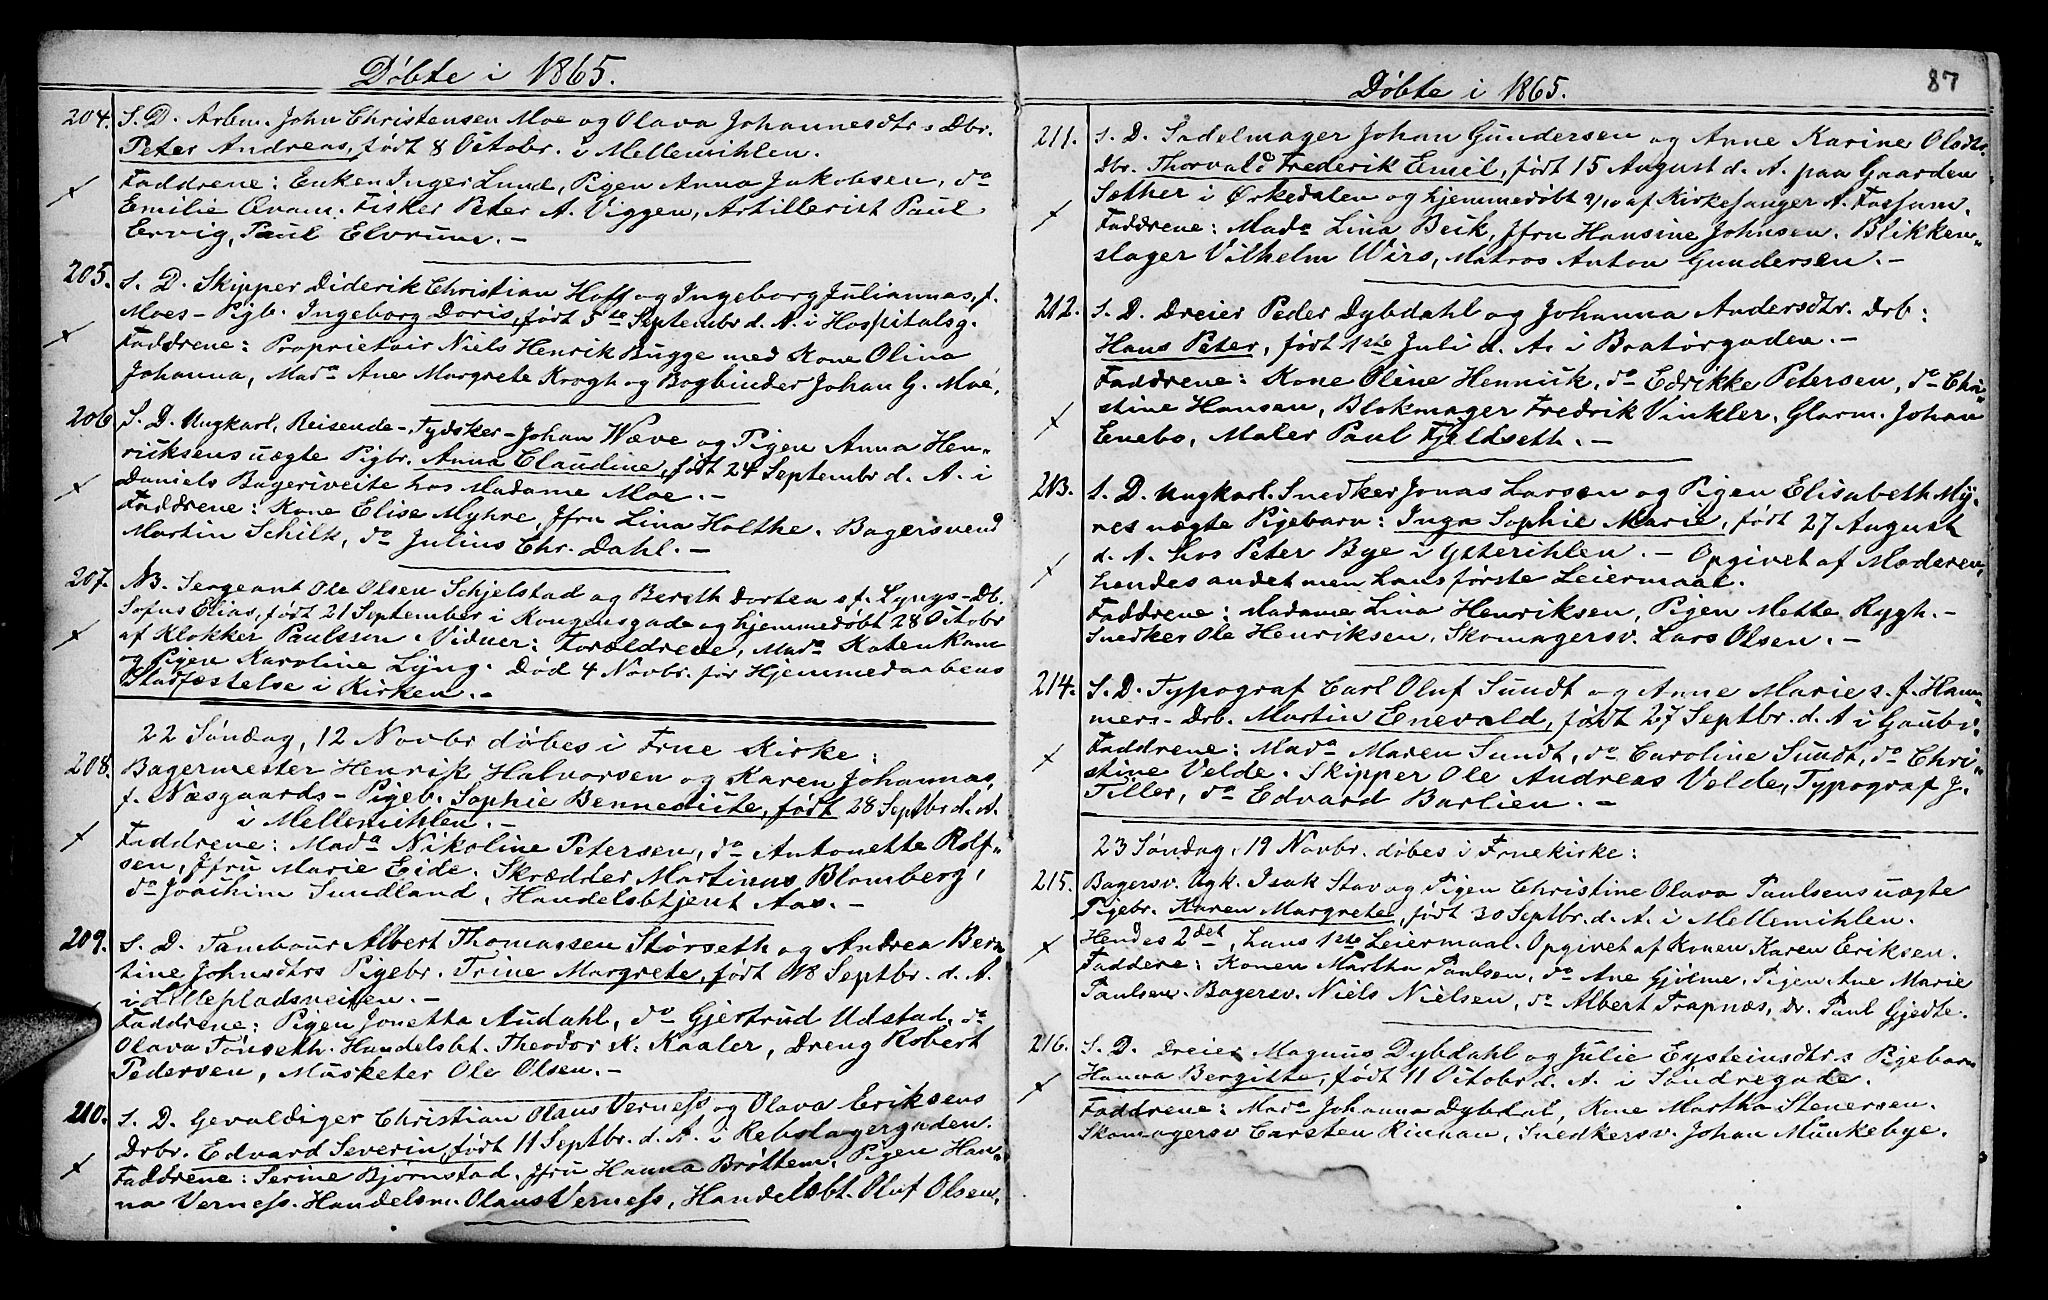 Döbte i 1865.
204. S. D. Arbm. John Christensen Moe og Olava Johannesdtrs Dbr.
Peter Andreas, født 8 Octobr. i Mellemihlen.
Faddrene: Enken Inger Lund, Pigen Anna Jakobsen, do
Emilie Qvam. Fisker Peter A. Viggen, Artillerist Paul
Ervig, Paul Elvrum. –
205. S. D. Skipper Diderik Christian Hoff og Ingeborg Juliannas, f.
Moes – Pigb. Ingeborg Doris, født 5te Septembr d. A. i Hospitalsg.
Faddrene: Proprietair Niels Henrik Bugge med Kone Olina
Johanna, Mada Ane Margrete Krogh og Bogbinder Johan G. Moe.
206 S. D. Ungkarl, Reisende – Tydsker – Johan Wæve og Pigen Anna Hen„
riksens uægte Pigbr. Anna Claudine, født 24 Septembr d. A. i
Daniels Bageriveite hos Madame Moe. –
Faddrene: Kone Elise Myhre, Jfru Lina Holthe. Bagersvend
Martin Schilk, do Julius Chr. Dahl. –
207. NB. Sergeant Ole Olsen Schjelstad og Bereth Dortea s f. Lyngs – Db.
Sofus Elias, født 21 September i Kongensgade og hjemmedøbt 28 Octobr
af Klokker Paulsson. Vidner: Forældrene, Mada Katenkam
og Pigen Karoline Lyng. Død 4 Novbr. før Hjemmedaabens
Stadfæstelse i Kirken. –
22 Søndag, 12 Novbr döbes i Frue Kirke:
208. Bagermester Henrik Halvorsen og Karen Johannas,
f. Næsgaards – Pigeb. Sophie Bennedicte, født 28 Septbr d. A.
i Mellemihlen. –
Faddrene: Mada Nikoline Petersen, do Antonette Rolf„
sen, Jfru Marie Eide. Skrædder Martinus Blomberg,
do Joachim Sundland, Handelsbtjent Aas. –
209. S. D. Tambour Albert Thomassen Störseth og Andrea Bern
tine Johnsdtrs Pigebr. Trine Margrete, født 18 Septbr. d. A.
i Lillepladsveiten. –
Faddrene: Pigen Jonetta Audahl, do Gjertrud Udstad, do
Olava Tönseth. Handelsbt. Theodor K: Kaaler, Dreng Robert
Pedersen, Musketer Ole Olsen. –
210. S. D. Gevaldiger Christian Olaus Verness og Olava Eriksens
Drbr. Edvard Severin, født 11 Septbr. d. A. i Rebslagergaden.
Faddrene: Serine Bjørnstad. Jfru Hanna Bröttem. Pigen Han„
na Verness. Handelsm. Olaus Verness, Handelsbt. Oluf Olsen.
Döbte i 1865.
87
211. S. D. Sadelmager Johan Gundersen og Anne Karine Olsdtrs
Dbr. Thorvald Frederik Emil, født 15 August d. A. paa Gaarden
Sother i Ørkedalen og hjemmedöbt 2/10 af Kirkesanger A. Fossum.
Faddrene: Mada Lina Beik, Jfru Hansine Johnsen. Blikken„
slager Vilhelm Wirs, Matros Anton Gundersen. –
212. S. D. Dreier Peder Dybdahl og Johanna Andersdtr. Drb:
Hans Peter, født 1ste Juli d. A. i Bratörgaden. –
Faddrene: Kone Oline Hennick, do Edrikke Petersen, do Chri„
stine Hansen, Blokmager Fredrik Vinkler. Glarm. Johan
Enebo, Maler Paul Fjeldseth. –
213. S. D. Ungkarl. Snedker Jonas Larsen og Pigen Elisabeth My„
res uægte Pigebarn: Inga Sophie Marie, født 27 August
d. A. hos Peter Bye i Ytterihlen. – Opgivet af Moderen,
hendes andet men hans første Leiermaal.
Faddrene: Madame Lina Henriksen, Pigen Mette Rygh. –
Snedker Ole Henriksen. Skomagersv. Lars Olsen. –
214. S. D. Typograf Carl Oluf Sundt og Anne Marie s. f. Ham„
mers – Drb. Martin Enevold, født 27 Septbr. d. A i Gaubv.
Faddrene: Mada Maren Sundt, do Caroline Sundt, do Chri„
stine Velde. Skipper Ole Andreas Velde, Typograf J.
Tiller, do Edvard Barlien. –
23 Söndag, 19 Novbr. döbes i Fruekirke:
215. Bagersv. Ugk. Isak Stav og Pigen Christine Olava Paulsens uægte
Pigebr. Karen Margrete, født 30 Septbr. d. A. i Mellemihlen.
Hendes 2det, hans 1ste Leiermaal. Opgivet af Konen Karen Eriksen.
Faddere: Konen Martha Paulsen, do Ane Gjölme. Pigen Ane Marie
Paulsen. Bagersv. Niels Nielsen, do Albert Trapnæs, Dr. Paul Gjedte.
216. S. D. Dreier Magnus Dybdahl og Julie Eysteinsdtrs Pigebarn
Hanna Bergitte, født 11 Octobr d. A. i Söndregade.
Faddrene: Mada Johanna Dybdal, Kone Martha Stenersen.
Skomagersv Carsten Rinnan, Snedkersv. Johan Munkebye.